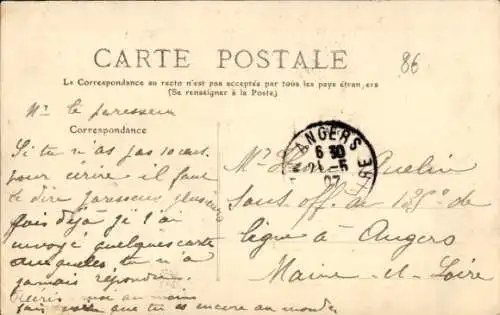 CARTE POSTALE
86
La Correspondance au recto n'est pas acceptée par tous les pays étrangers
(Se renseigner à la Poste)
Mr le paresseux
Correspondance
Si tu n'as pas 10 cent.
pour écrire il faut
le dire paresseux plusieurs
fois déjà je t'ai
envoyé quelques carte
auxquelles tu n'a
jamais répondu.
Ecris moi au moins
que tu es encore au monde
ANGERS GARE
6 30
21 -5
07
Mr
sous off. au 135e de
ligne à Angers
Maine-et-Loire